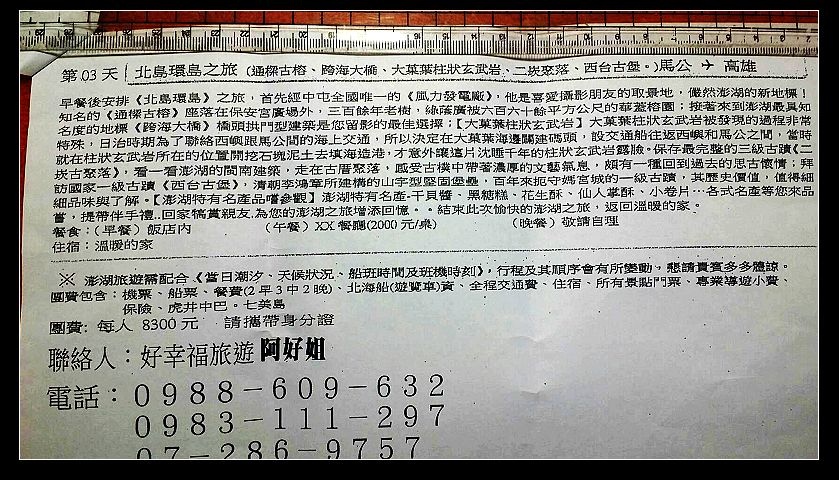 第03天 北島環島之旅 (通樑古榕、跨海大橋、大菓葉柱狀玄武岩、二崁聚落、西台古堡。)馬公 ✈ 高雄
早餐後安排《北島環島》之旅，首先經中屯全國唯一的《風力發電廠》，他是喜愛攝影朋友的取景地，儼然澎湖的新地標！
知名的《通樑古榕》座落在保安宮廣場外，三百餘年老樹，綠蔭廣被六百六十餘平方公尺的華蓋榕園；接著來到澎湖最具知
名度的地標《跨海大橋》橋頭拱門型建築是您留影的最佳選擇；【大菓葉柱狀玄武岩】大菓葉柱狀玄武岩被發現的過程非常
特殊，日治時期為了聯絡西嶼跟馬公間的海上交通，所以決定在大菓葉海邊闢建碼頭，設交通船往返西嶼和馬公之間，當時
就在柱狀玄武岩所在的位置開挖石塊泥土去填海造港，才意外讓這片沈睡千年的柱狀玄武岩露臉。保存最完整的三級古蹟《二
崁古聚落》，看一看澎湖的閩南建築，走在古厝聚落，感受古樸中帶著濃厚的文藝氣息，頗有一種回到過去的思古懷情；拜
訪國家一級古蹟《西台古堡》，清朝李鴻章所建構的山字型堅固堡壘，百年來扼守媽宮城的一級古蹟，其歷史價值，值得細
細品味與了解。【澎湖特有名產品嚐參觀】澎湖特有名產-干貝醬、黑糖糕、花生酥、仙人掌酥、小卷片…各式名產等您來品
嘗，提帶伴手禮..回家犒賞親友,為您的澎湖之旅增添回憶。。結束此次愉快的澎湖之旅，返回溫暖的家。
餐食：(早餐) 飯店內 (午餐) XX餐廳(2000元/桌) (晚餐) 敬請自理
住宿：溫暖的家
※ 澎湖旅遊需配合《當日潮汐、天候狀況、船班時間及班機時刻》，行程及其順序會有所變動，懇請貴賓多多體諒。
團費包含：機票、船票、餐費(2早3中2晚)、北海船(遊覽車)資、全程交通費、住宿、所有景點門票、專業導遊小費、
保險、虎井中巴。七美島
團費: 每人 8300元 請攜帶身分證
聯絡人：好幸福旅遊 阿好姐
電話：0988-609-632
0983-111-297
07-286-9757